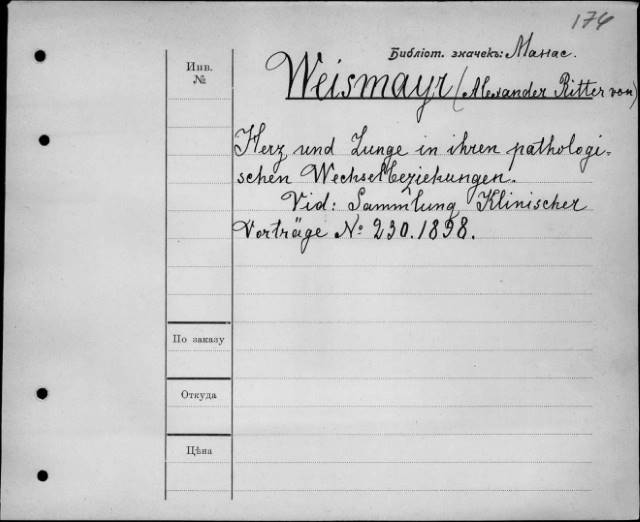 174
Библіот. значекъ: Манас.
Инв.
№
Weismayr (Alexander Ritter von)
Herz und Lunge in ihren pathologi-
schen Wechselbeziehungen.
Vid: Sammlung Klinischer
Vorträge № 230. 1898.
По заказу
Откуда
Цѣна